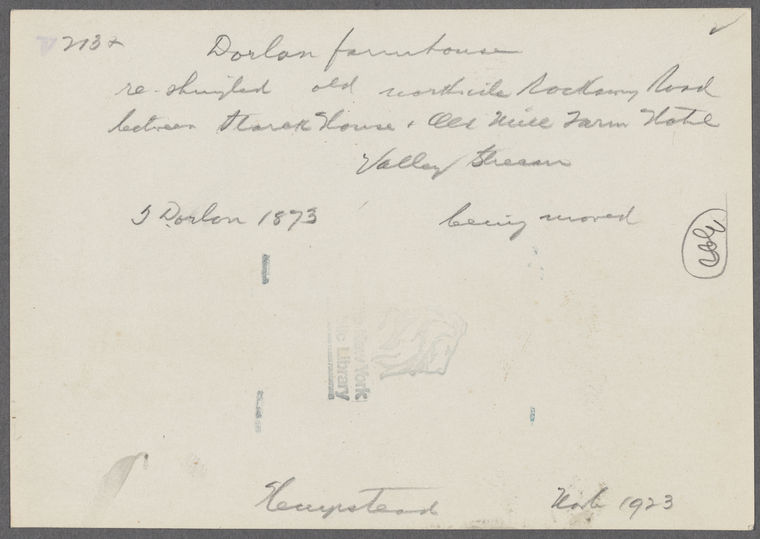 2132 Dorlon farmhouse
re-shingled old northside Rockaway Road
between House + Old Mill Farm Hotel
Valley Stream
Dorlon 1873 being moved
New York
Public Library
Hempstead 1923